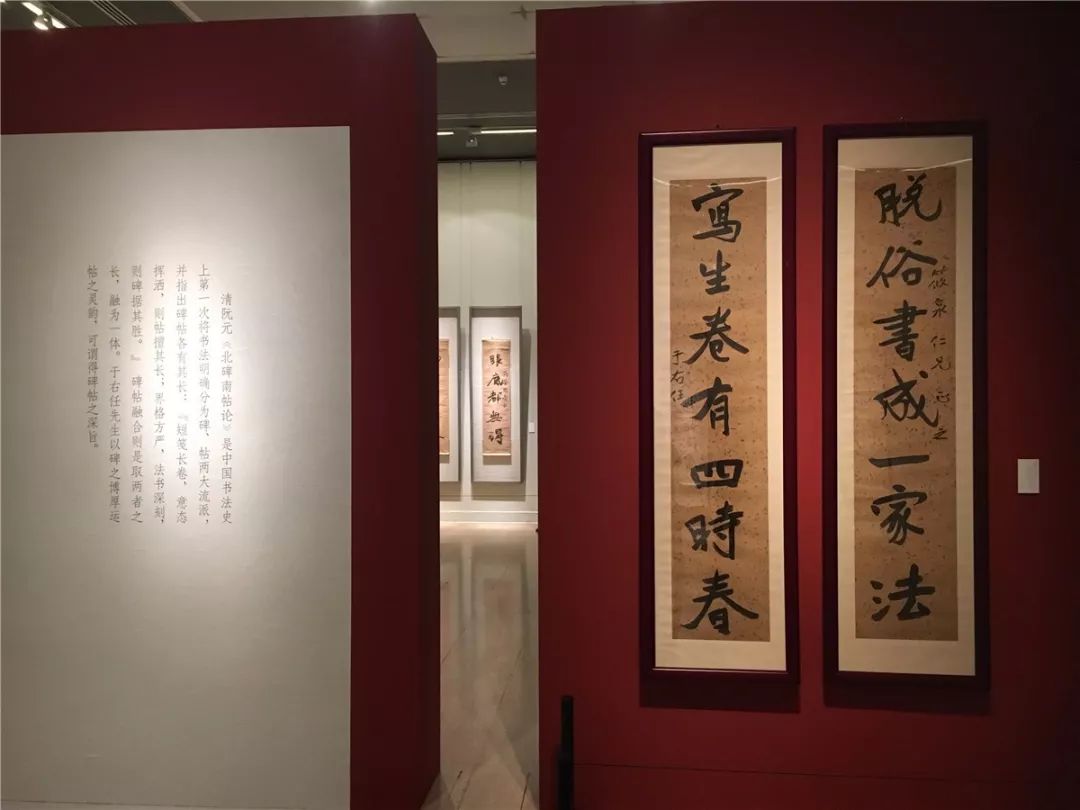 清阮元《北碑南帖论》是中国书法史
上第一次将书法明确分为碑、帖两大流派，
并指出碑帖各有其长：『短笺长卷，意态
挥洒，则帖擅其长；界格方严，法书深刻，
则碑据其胜。』碑帖融合则是取两者之
长，融为一体。于右任先生以碑之博厚运
帖之灵韵，可谓得碑帖之深旨。
眼底都無
筱泉仁兄正之
脱俗書成一家法
寫生卷有四時春
于右任